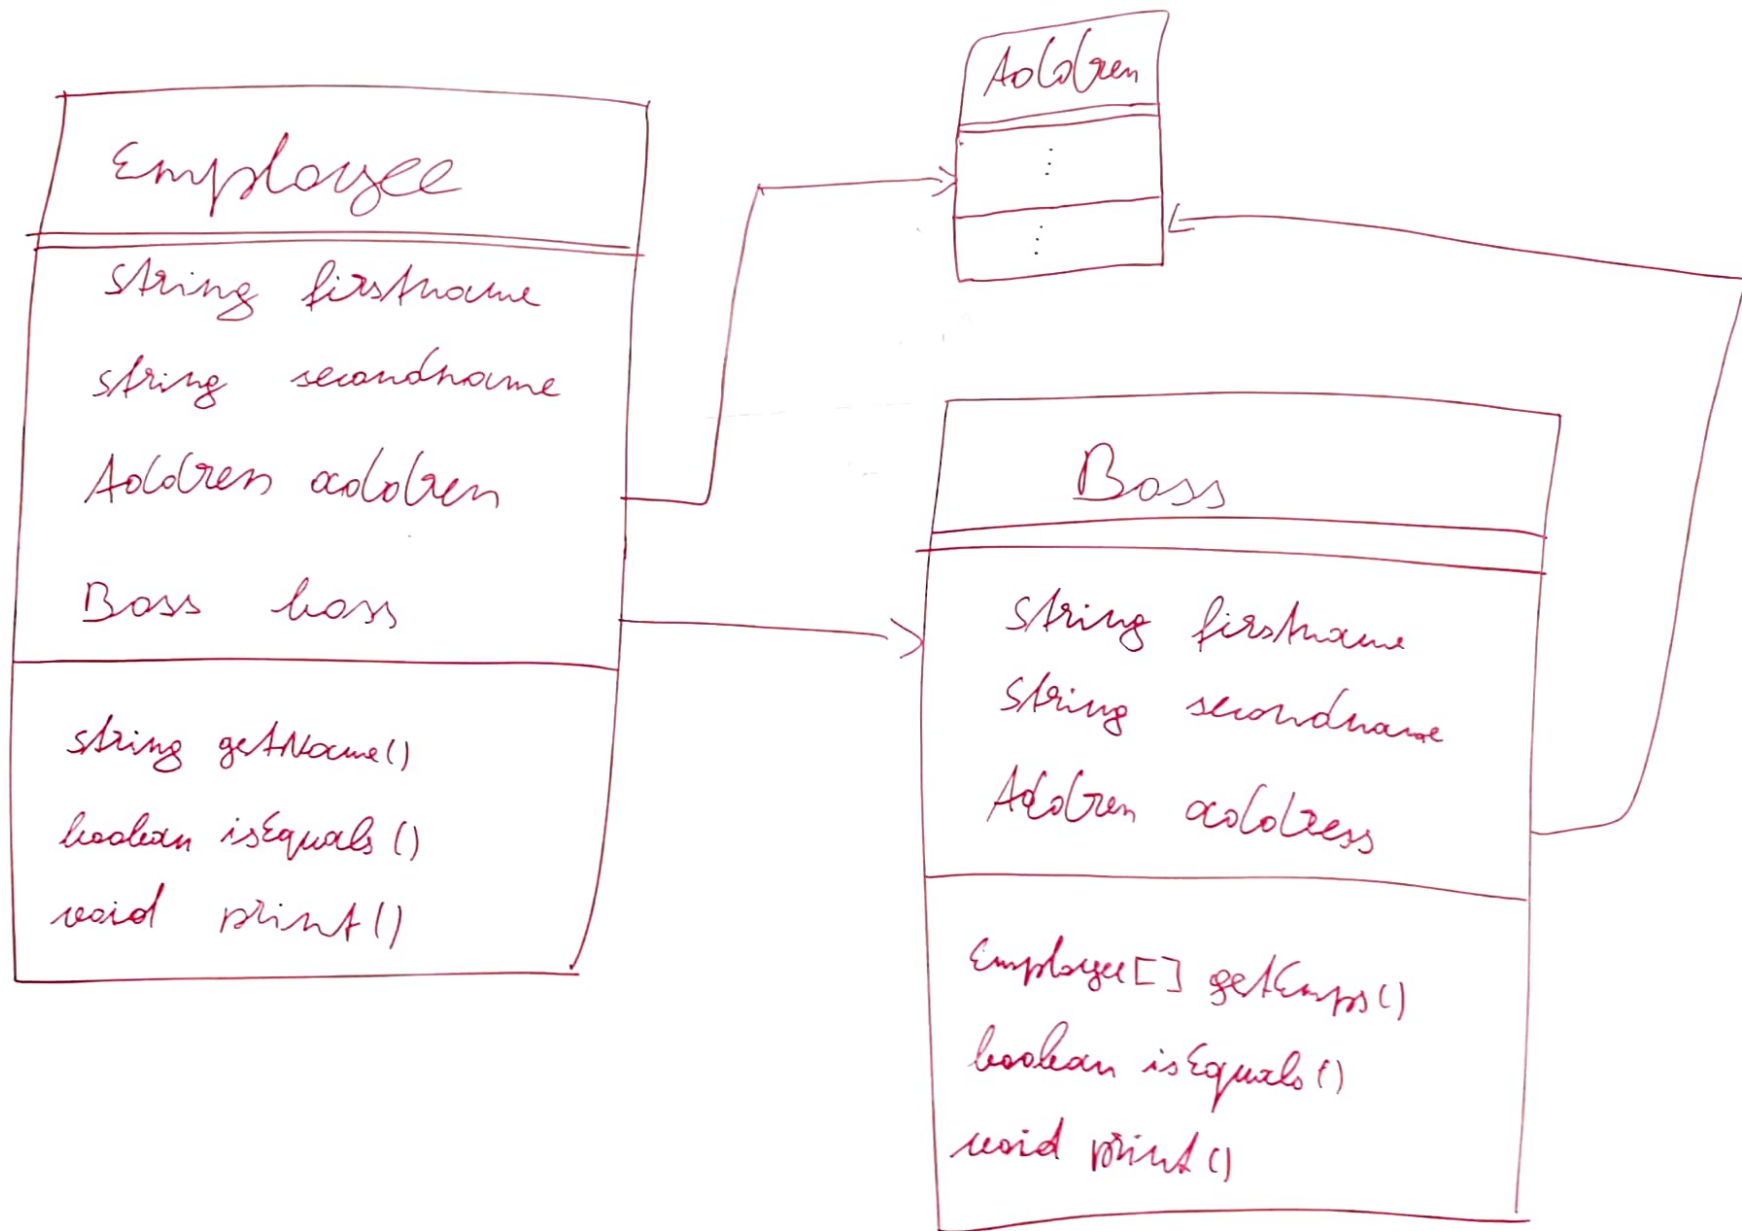 Employee
string firstname
string secondname
Address address
Boss boss
string getName()
boolean isEquals()
void print()
Address
⋮
⋮
Boss
string firstname
string secondname
Address address
Employee[] getEmps()
boolean isEquals()
void print()